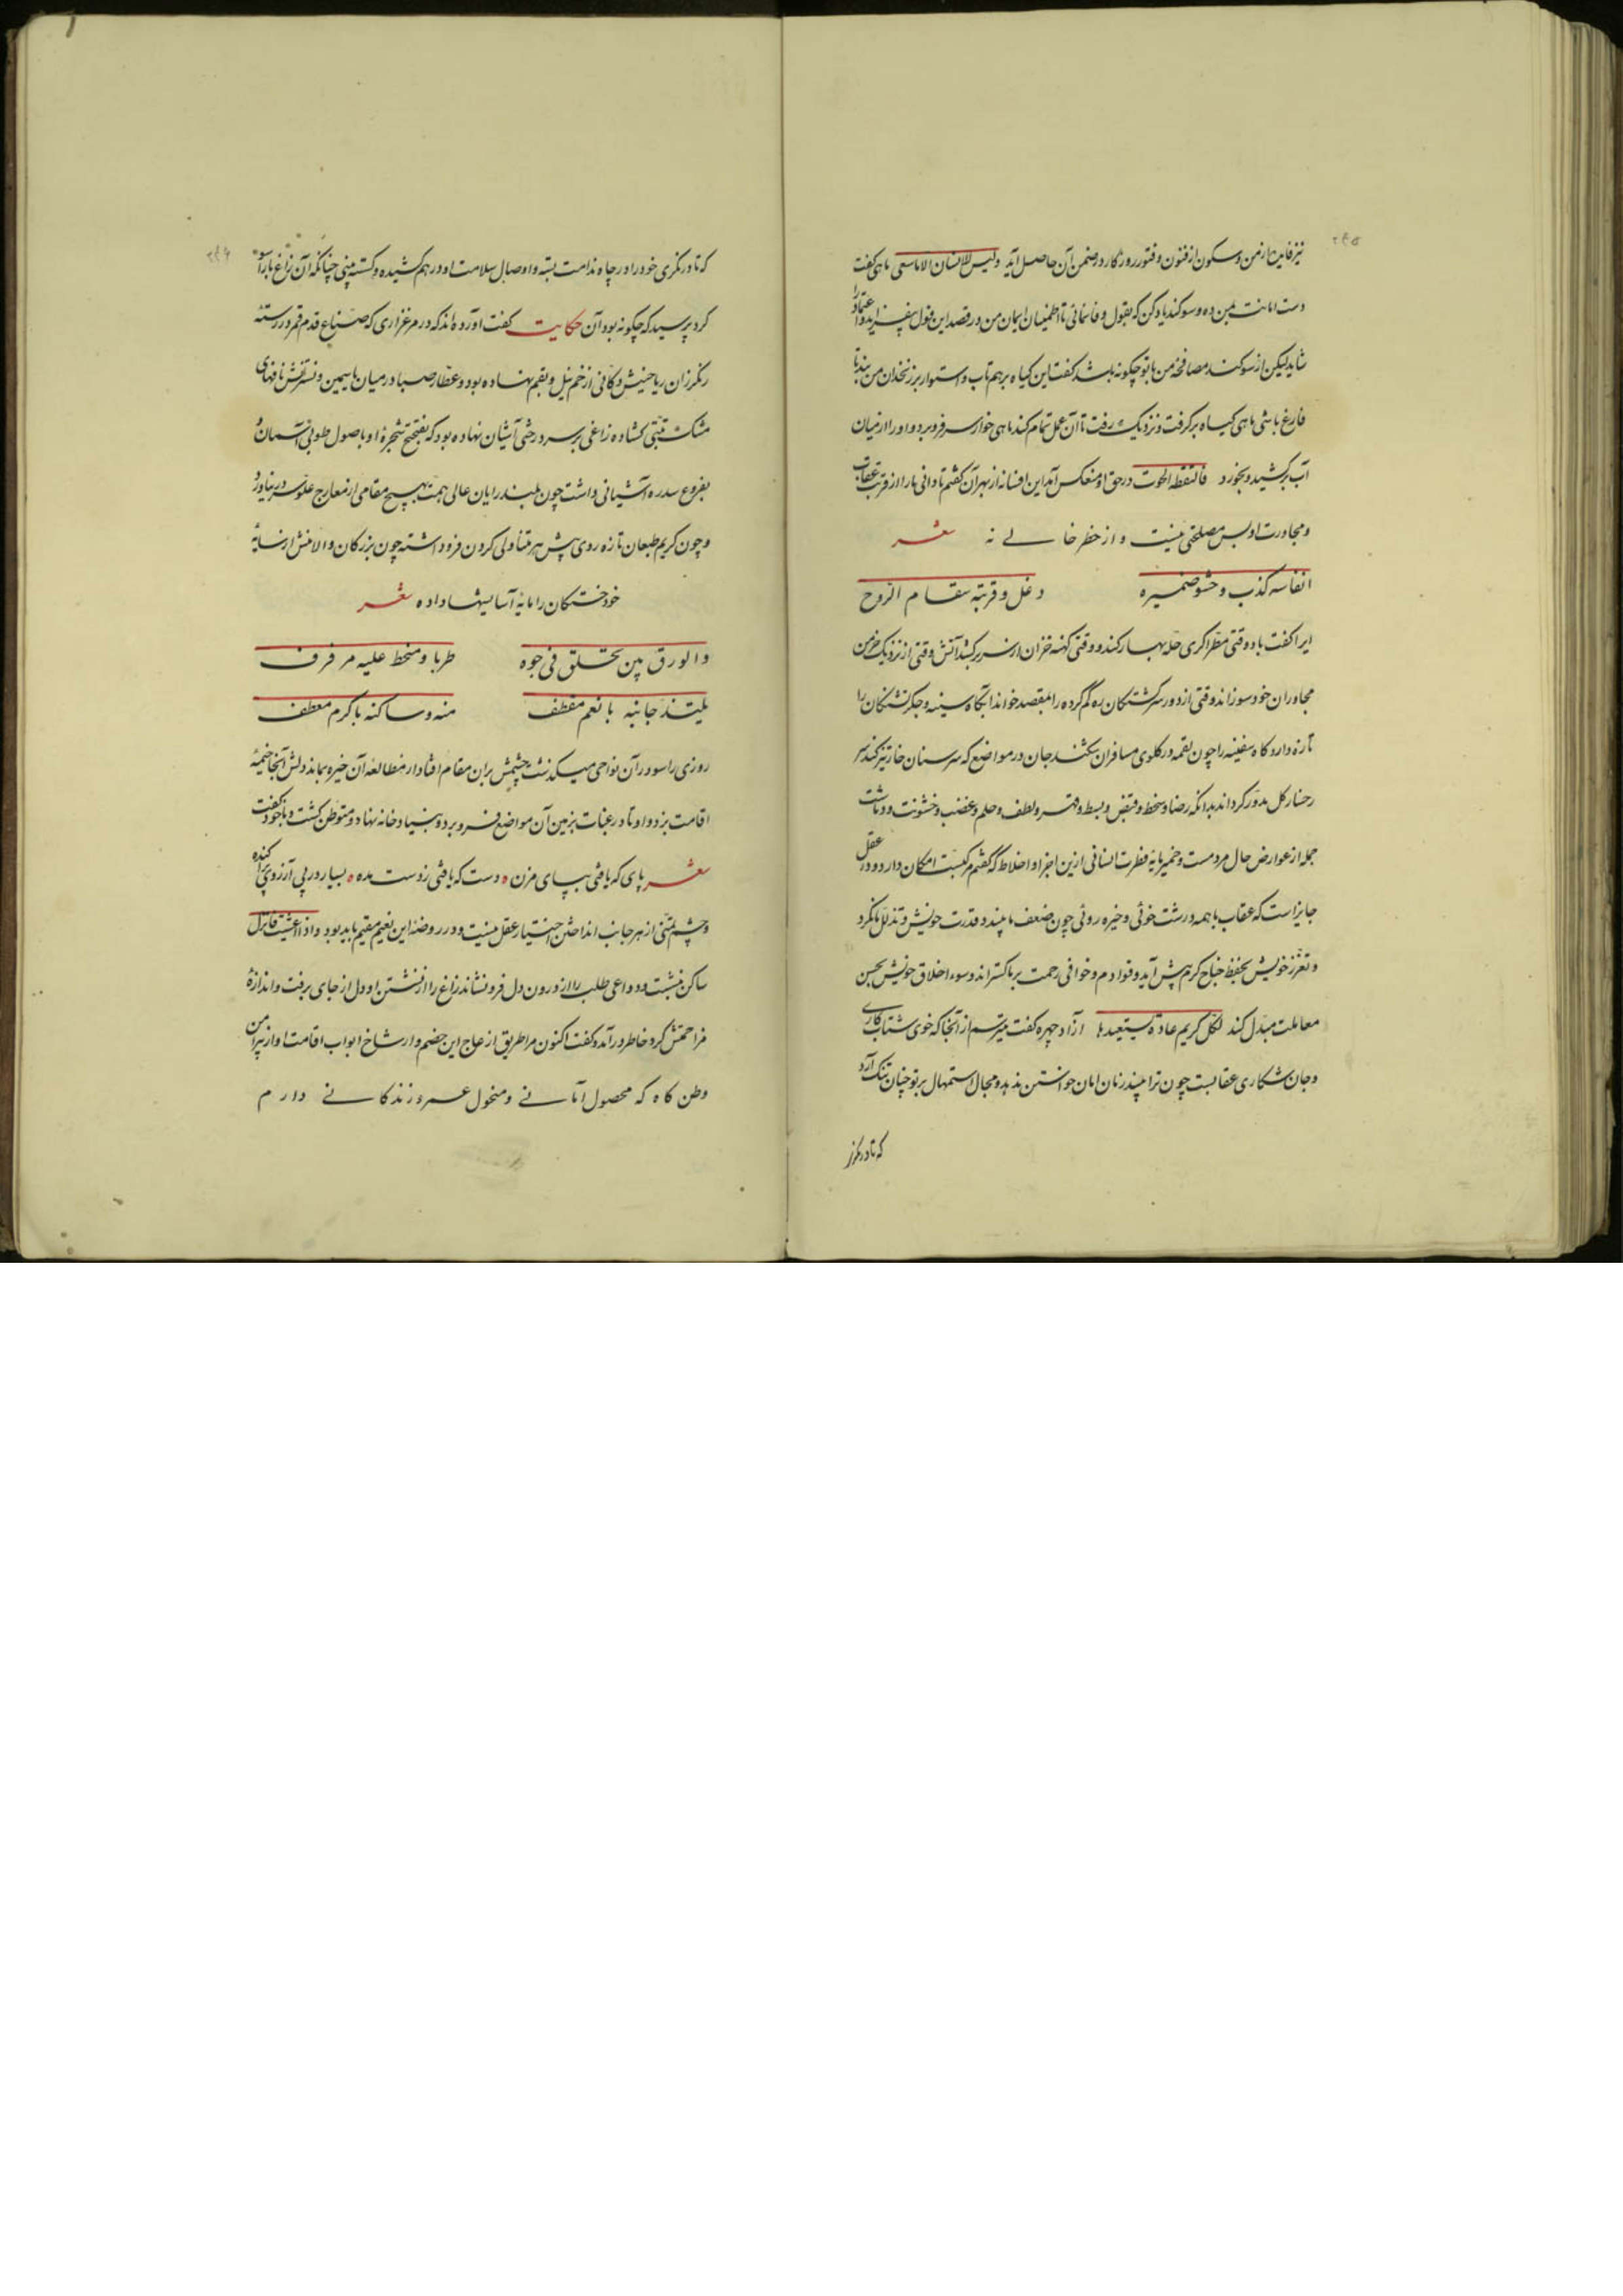 نیز فایدهٔ از من و سکون از فتون و فتور روزگار در ضمن آن حاصل آید ولیس للانسان الا ما سعی ماهی گفت
دست امانت بمن ده و سوگند یاد کن که بقول وفا نمائی تا اطمینان ایمان من در قصد این قول بیفزاید و اعتماد را
شاید لیکن از سوگند مصافحهٔ من با تو چگونه باشد گفت این گیاه بر هم تاب و استوار بر زنخدان من بند تا
فارغ باشی ماهی گیاه برگرفت و نزدیک رفت تا آن عمل تمام کند ماهی خوار سر فرو برد و او را از میان
آب برکشید و بخورد فالتقطه الحوت در حق او منعکس آمد این افسانه از بهر آن گفتم تا دانی ما را از قربت عقاب
و مجاورت او بس مصلحتی نیست و از خطر خالی نه شعر
انفاسه کذب و حشو ضمیره دغل و قربته سقام الروح
ایرا گفت باد وقتی مطراگری حلهٔ بهار کند و وقتی کهنه خزان از سر برکشد آتش وقتی از نزدیک خرمن
مجاوران خود سوزاند وقتی از دور سرگشتگان ره گم کرده را بمقصد خواند آب گاه سینه و جگر تشنگان را
تازه دارد گاه سفینه را چون لقمه در گلوی مسافران شکند جان در مواضع که سر سنان خار تیز کند سر
رخسار گل مدور گرداند بدانکه رضا و سخط و قبض و بسط و قهر و لطف و حلم و غضب و خشونت و دماثت
جمله از عوارض حال مردمست و خمیر مایهٔ فطرت انسانی ازین اجزا و اخلاط که گفتم مرکبست امکان دارد و در عقل
جایز است که عقاب با همه درشت خوئی و خیره روئی چون ضعف ما بیند و قدرت خویش و تذلل ما نگرد
و تعزز خویش بخفض جناح کرم پیش آید و قوادم و خوافی رحمت بر ما گستراند و سوء اخلاق خویش بحسن
معاملت مبدل کند لکل کریم عادة یستعیدها آزاد چهره گفت میترسم از آنجا که خوی شتاب کاری
و جان شکاری عقابست چون ترا بیند زمان امان خواستن ندهد و مجال استمهال بر تو چنان تنگ آرد
که تا در نگری
که تا در نگری خود را در چاه ندامت بسته و اوصال سلامت او در هم کشیده و گسسته بینی چنانکه آن زاغ را با راسو
کرد پرسید که چگونه بود آن حکایت گفت آورده‌اند که در مرغزاری که صباغ قدم قمر در رستهٔ
رنگرزان ریاحینش دکانی از خم نیل و بقم نهاده بود و عطار صبا در میان یاسمین و نسترنش نافهای
مشک تبتی گشاده زاغی بر سر درختی آشیان نهاده بود که شجرهٔ او باصول طوبی آسمان و
بفروع سدره آشیانی داشت چون بلند رایان عالی همت بهیچ مقامی از معارج علو سر در نیاورد
و چون کریم طبعان تازه روی پیش هر متناولی گردن فرود داشته چون بزرگان والا منش از سایهٔ
خود خستگان را مایهٔ آسایشها داده شعر
والورق بین محلق فی جوه طربا و منحط علیه مرفرف
یلتذ جانیه بانعم مقطف منه و ساکنه باکرم معطف
روزی راسو در آن نواحی میگذشت چشمش بران مقام افتاد از مطالعه آن خیره بماند دلش آنجا خیمهٔ
اقامت بزد و اوتاد رغبات بزمین آن مواضع فرو برد و بنیاد خانه نهاد و متوطن گشت و با خود گفت
شعر پای که یافتی بپای مزن دست که یافتی ز دست مده بسیار در پی آرزوی پراکنده
و چشم تمنی از هر جانب انداختن اختیار عقل نیست و در روضهٔ این نعیم مقیم باید بود و اذا اعشبت فانزل
ساکن بنشست و دواعی طلب را از درون دل فرو نشاند زاغ را از نشستن او دل از جای برفت و اندازهٔ
مزاحمتش کرد خاطر در آمد و گفت اکنون مرا طریق ازعاج این خصم و ارشاخ ابواب اقامت او از پیرامن
وطن گاه که محصول امانی و منخول عمر و زندگانی دارم